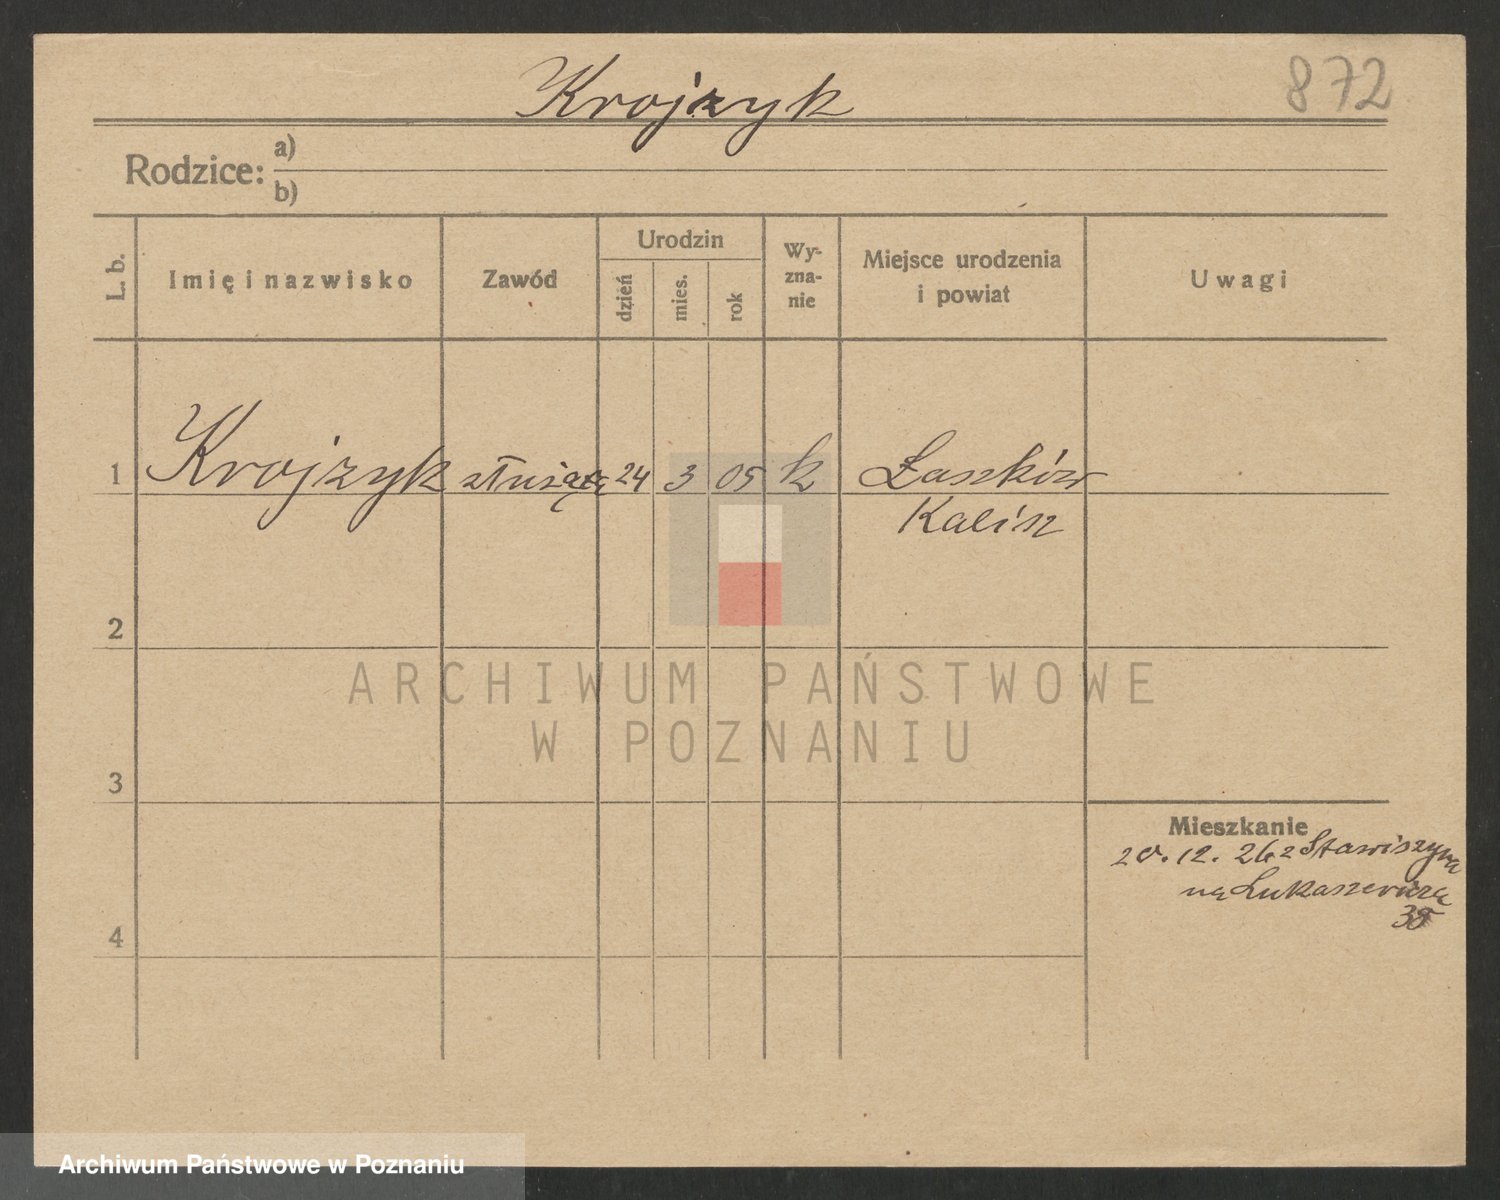 Krojzyk
872
Rodzice: a)
b)
L. b.
Imię i nazwisko
Zawód
Urodzin
dzień
mies.
rok
Wy-
zna-
nie
Miejsce urodzenia
i powiat
Uwagi
1 Krojzyk 24 3 05 k Łaszków
Kalisz
2
3
4
Mieszkanie
20.12.26 z Stawiszyna
na Łukaszewicza
38
ARCHIWUM PAŃSTWOWE
W POZNANIU
Archiwum Państwowe w Poznaniu